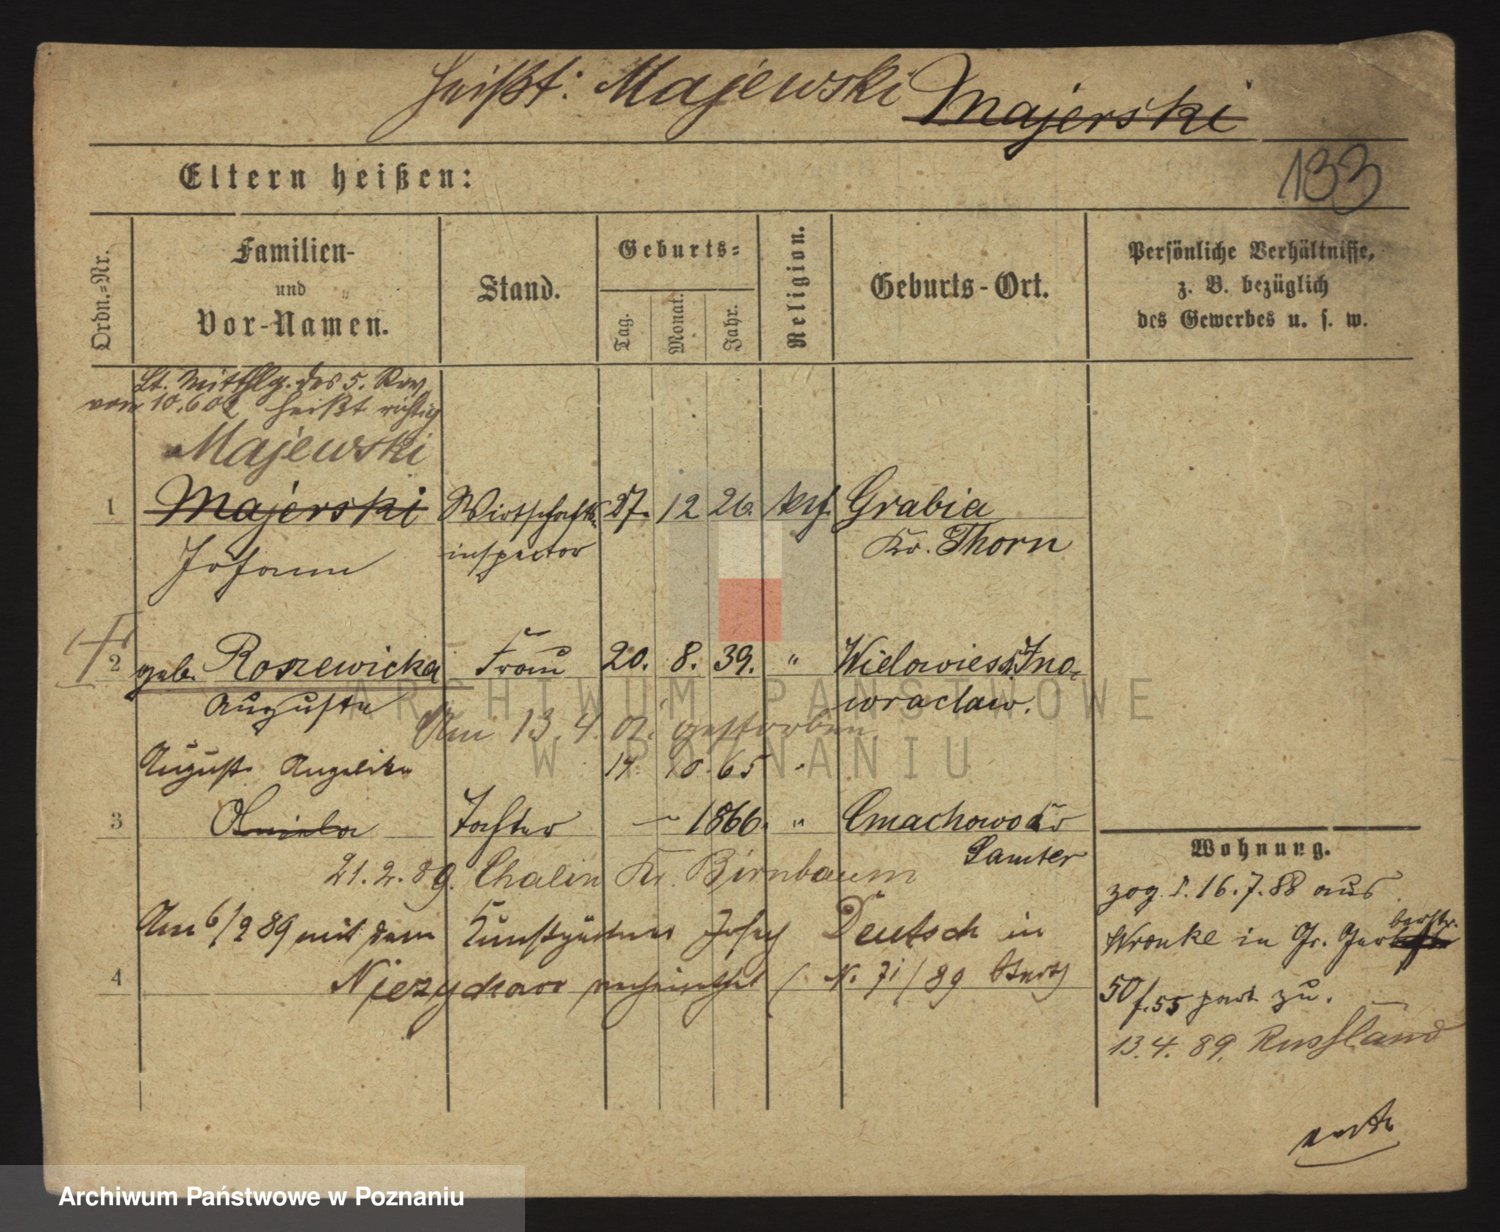 heißt: Majewski Majerski
133
Eltern heißen:
Ordn.-Nr.
Familien-
und
Vor-Namen.
Stand.
Geburts-
Tag.
Monat.
Jahr.
Religion.
Geburts-Ort.
Persönliche Verhältnisse,
z. B. bezüglich
des Gewerbes u. s. w.
Lt. Mitthlg. des 5. Rev.
vom 10.6.02 heißt richtig
Majewski
1 Majerski Wirtschafts- 27. 12 26. Grabia
Johann inspector Kr. Thorn
2 geb. Roszewicka Frau 20. 8. 39. " Wielowies Ino-
Auguste wraclaw.
Am 13.4.02. gestorben.
August Angelika 14 10. 65 "
3 Tochter — 1866. " Cmachowo Kr
Samter
21.2.89. Chalin Kr. Birnbaum
Am 6/2 89 mit dem Kunstgärtner Josef Deutsch in
4 verheirathet N. 71/89
Wohnung.
zog d. 16.7.88 aus
Wronke in Gr. Gerberstr.
50/f.55 part. zu.
13.4.89. Russland
ARCHIWUM PAŃSTWOWE
W POZNANIU
Archiwum Państwowe w Poznaniu